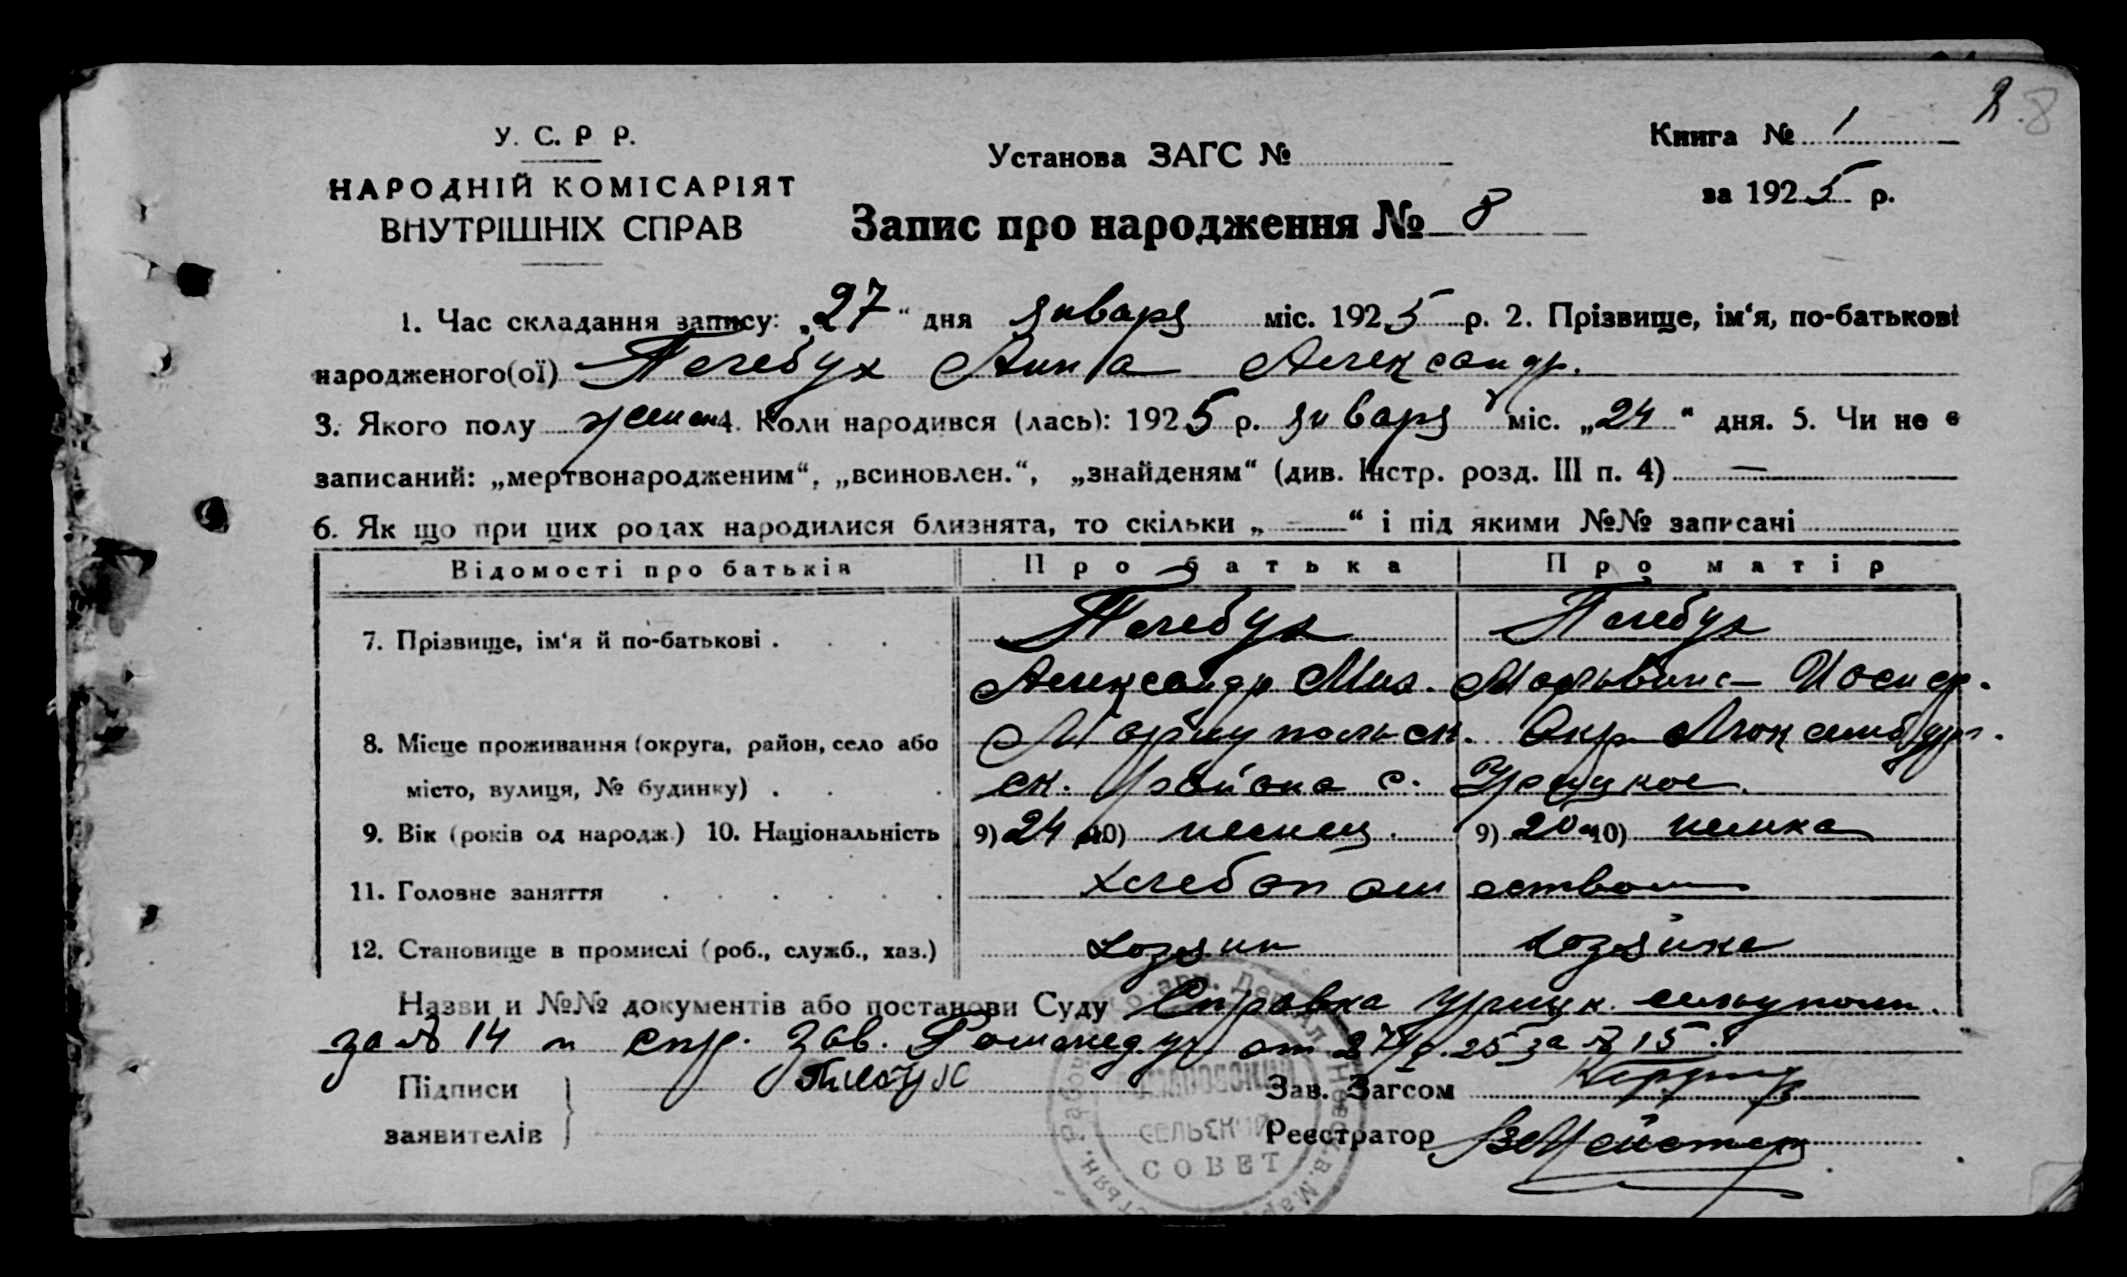 2.8
У. С. Р Р.
НАРОДНІЙ КОМІСАРІЯТ
ВНУТРІШНІХ СПРАВ
Установа ЗАГС №
Книга № 1
за 1925 р.
Запис про народження № 8
1. Час складання запису: „27“ дня января міс. 1925 р. 2. Прізвище, ім‘я, по-батькові
народженого(ої) Пелебух Анна Александр.
3. Якого полу женск 4. Коли народився (лась): 1925 р. января міс. „24“ дня. 5. Чи не є
записаний: „мертвонародженим“, „всиновлен.“, „знайденям“ (див. Інстр. розд. III п. 4) —
6. Як що при цих родах народилися близнята, то скільки „ — “ і під якими №№ записані
Відомості про батьків Про батька Про матір
7. Прізвище, ім‘я й по-батькові . . . . Пелебух Пелебух
Александр Мих. Мальвина Иосиф.
8. Місце проживання (округа, район, село або Мариупольск. Окр Люксембург.
місто, вулиця, № будинку) . . . ск. района с. Урицкое
9. Вік (років од народж.) 10. Національність 9) 24 10) немец. 9) 20 10) немка
11. Головне заняття . . . . . . Хлебопашеством
12. Становище в промислі (роб., служб., хаз.) хозяин хозяйка
Назви и №№ документів або постанови Суду Справка Урицк. сельуполн.
за № 14 и спр. Зав. от 27/I. 25 за № 15.
Підписи
заявителів
Зав. Загсом
Реєстратор
СЕЛЬСКИЙ
СОВЕТ